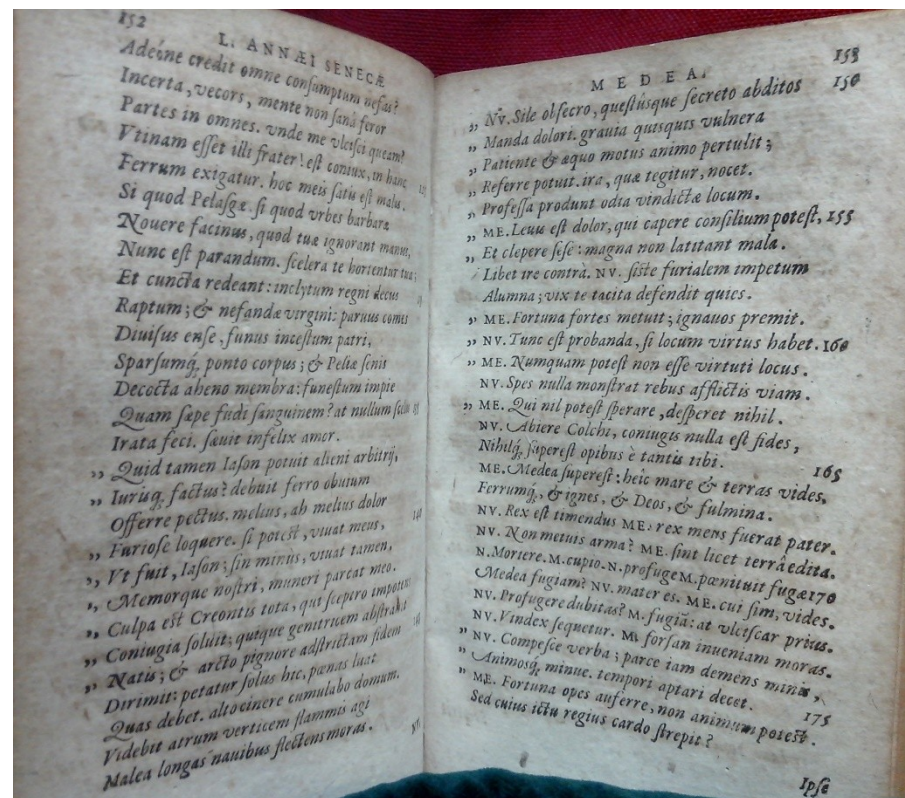 152
L. ANNÆI SENECÆ
Adeóne credit omne conſumptum nefas?
Incerta, vecors, mente non ſanâ feror
Partes in omnes. vnde me vlciſci queam?
Vtinam eſſet illi frater! eſt coniux, in hanc
Ferrum exigatur. hoc meis ſatis eſt malis.
Si quod Pelaſgæ, ſi quod vrbes barbaræ
Nouere facinus, quod tuæ ignorant manus,
Nunc eſt parandum. ſcelera te hortentur tua;
Et cuncta redeant: inclytum regni decus
Raptum; & nefandæ virginis paruus comes
Diuiſus enſe, funus inceſtum patri,
Sparſumq́; ponto corpus; & Peliæ ſenis
Decocta aheno membra: funeſtum impie
Quam ſæpe fudi ſanguinem? at nullum ſcelus
Irata feci. ſæuit infelix amor.
„ Quid tamen Iaſon potuit alieni arbitrij,
„ Iurisq́; factus? debuit ferro obuium
Offerre pectus. melius, ah melius dolor
„ Furioſe loquere. ſi poteſt, viuat meus,
„ Vt fuit, Iaſon; ſin minus, viuat tamen,
„ Memorque noſtri, muneri parcat meo.
„ Culpa eſt Creontis tota, qui ſceptro impotens
„ Coniugia ſoluit; quique genitricem abſtrahit
„ Natis; & arcto pignore adſtrictam fidem
Dirimit: petatur ſolus hic, pœnas luat
Quas debet. alto cinere cumulabo domum.
Videbit atrum verticem flammis agi
Malea longas nauibus flectens moras.
153
MEDEA.
„ NV. Sile obſecro, queſtúsque ſecreto abditos 150
„ Manda dolori. grauia quisquis vulnera
„ Patiente & æquo motus animo pertulit;
„ Referre potuit. ira, quæ tegitur, nocet.
„ Profeſſa produnt odia vindictæ locum.
„ ME. Leuis eſt dolor, qui capere conſilium poteſt, 155
„ Et clepere ſeſe: magna non latitant mala.
Libet ire contrà. NV. ſiſte furialem impetum
Alumna; vix te tacita defendit quies.
„ ME. Fortuna fortes metuit; ignauos premit.
„ NV. Tunc eſt probanda, ſi locum virtus habet. 160
„ ME. Numquam poteſt non eſſe virtuti locus.
NV. Spes nulla monſtrat rebus afflictis viam.
„ ME. Qui nil poteſt ſperare, deſperet nihil.
NV. Abiere Colchi, coniugis nulla eſt fides,
Nihilq́; ſupereſt opibus è tantis tibi. 165
ME. Medea ſupereſt: heîc mare & terras vides,
Ferrumq́;, & ignes, & Deos, & fulmina.
NV. Rex eſt timendus ME: rex meus fuerat pater.
NV. Non metuis arma? ME. ſint licet terrâ edita.
N. Moriere. M. cupio. N. profuge M. pœnituit fugæ 170
Medea fugiam? NV. mater es. ME. cui ſim, vides.
NV. Profugere dubitas? M. fugiã: at vlciſcar prius.
NV. Vindex ſequetur. M. forſan inueniam moras.
„ NV. Compeſce verba; parce iam demens minis,
„ Animosq́; minue. tempori aptari decet. 175
„ ME. Fortuna opes auferre, non animum poteſt.
Sed cuius ictu regius cardo ſtrepit?
Ipſe